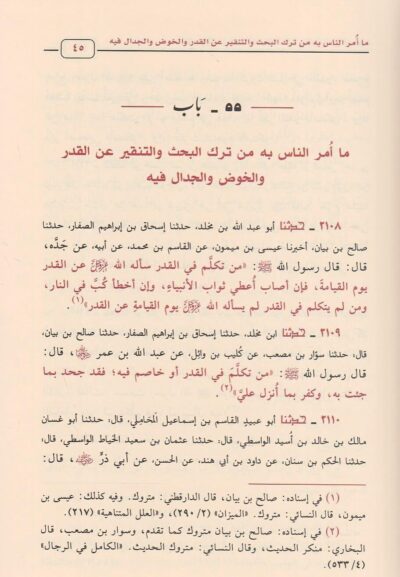 ما أُمر الناس به من ترك البحث والتنقير عن القدر والخوض والجدال فيه
٤٥
٥٥ ـ بَاب
ما أُمر الناس به من ترك البحث والتنقير عن القدر
والخوض والجدال فيه
٢١٠٨ ـ حدثنا أبو عبد الله بن مخلد، حدثنا إسحاق بن إبراهيم الصفار، حدثنا
صالح بن بيان، أخبرنا عيسى بن ميمون، عن القاسم بن محمد، عن أبيه، عن جَدَّه،
قال: قال رسول الله ﷺ: «من تكلَّم في القدر سأله الله عن القدر
يوم القيامة، فإن أصاب أُعطي ثواب الأنبياء، وإن أخطأ كُبَّ في النار،
ومن لم يتكلم في القدر لم يسأله الله يوم القيامة عن القدر»(١).
٢١٠٩ ـ حدثنا ابن مخلد، حدثنا إسحاق بن إبراهيم الصفار، حدثنا صالح بن بيان،
قال: حدثنا سوّار بن مصعب، عن كُليب بن وائل، عن عبد الله بن عمر، قال:
قال رسول الله ﷺ: «من تكلَّمَ في القدر أو خاصم فيه؛ فقد جحد بما
جئت به، وكفر بما أُنزل عليَّ»(٢).
٢١١٠ ـ حدثنا أبو عبيد القاسم بن إسماعيل المَحَامِلي، قال: حدثنا أبو غسان
مالك بن خالد بن أُسيد الواسطي، قال: حدثنا عثمان بن سعيد الخياط الواسطي، قال:
حدثنا الحكم بن سنان، عن داود بن أبي هند، عن الحسن، عن أبي ذرٍّ، قال:
(١) في إسناده: صالح بن بيان، قال الدارقطني: متروك. وفيه كذلك: عيسى بن
ميمون، قال النسائي: متروك. «الميزان» (٢/٢٩٠)، و«العلل المتناهية» (٢١٧).
(٢) في إسناده: صالح بن بيان متروك كما تقدم، وسوار بن مصعب، قال
البخاري: منكر الحديث، وقال النسائي: متروك الحديث. «الكامل في الرجال»
(٤/٥٣٣).